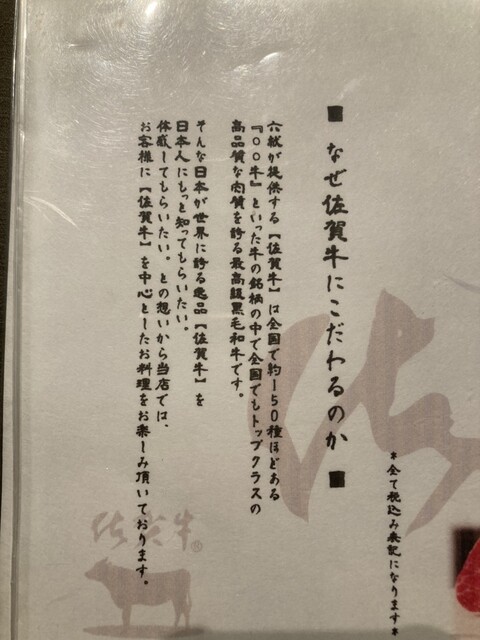 *全て税込み表記になります*
■ なぜ佐賀牛にこだわるのか ■
六献が提供する【佐賀牛】は全国で約150種ほどある
『○○牛』といった牛の銘柄の中で全国でもトップクラスの
高品質な肉質を誇る最高級黒毛和牛です。
そんな日本が世界に誇る逸品【佐賀牛】を
日本人にもっと知ってもらいたい。
体感してもらいたい。との想いから当店では、
お客様に【佐賀牛】を中心としたお料理をお楽しみ頂いております。
佐賀牛®
佐